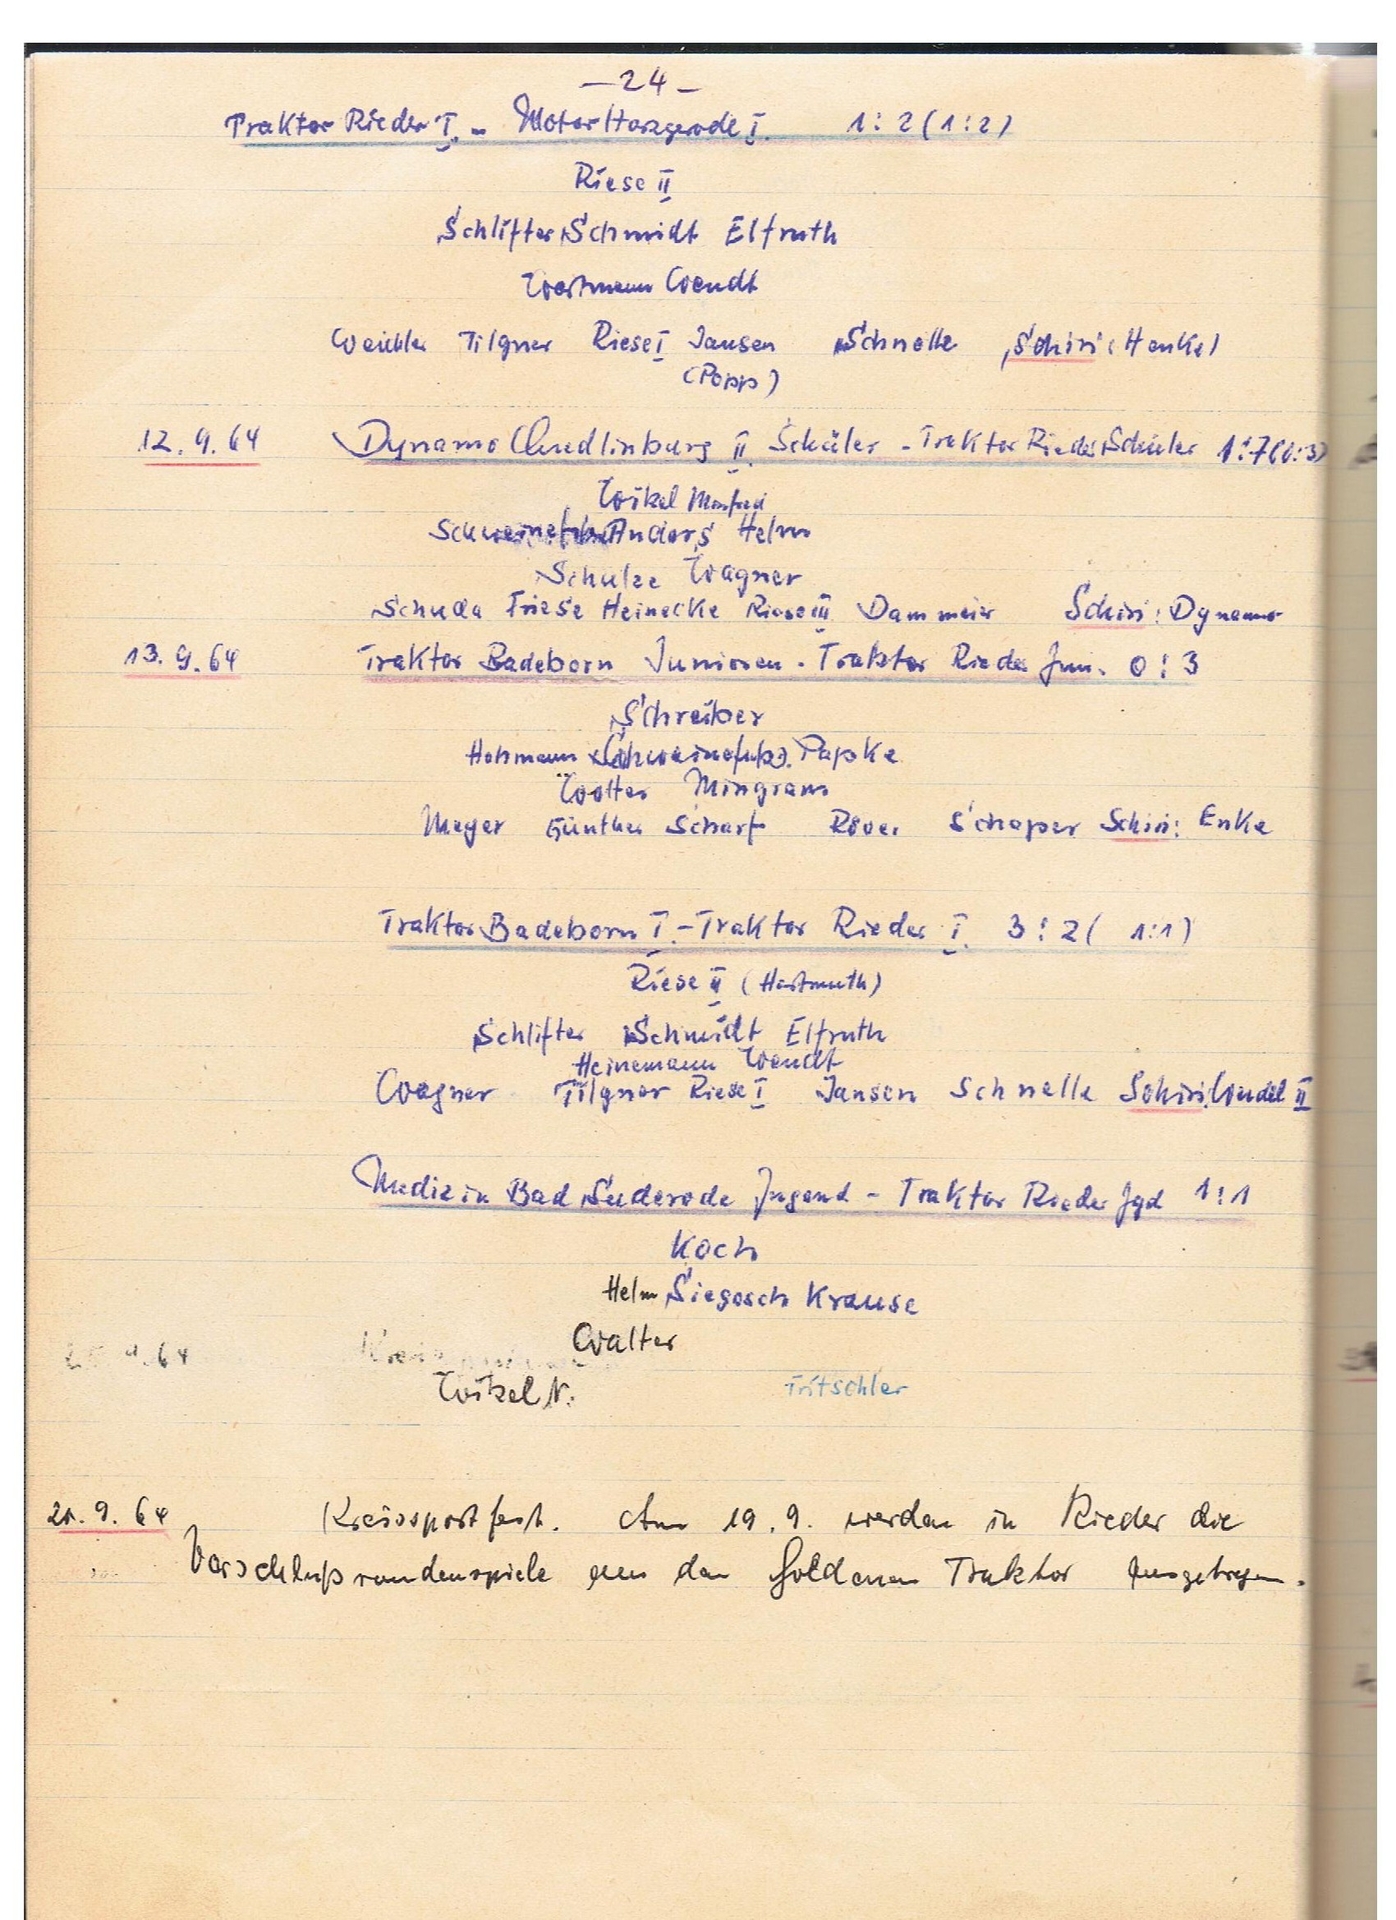 – 24 –
Traktor Rieder I. – Motor Harzgerode I. 1:2 (1:2)
Riese II
Schlifter Schmidt Elfruth
Wortmann Wendt
Weichler Tilgner Riese I Jansen Schnelle Schiri: Henkel
(Popp)
12.9.64 Dynamo Quedlinburg II. Schüler - Traktor Rieder Schüler 1:7 (0:3)
Wikel Manfred
Anders Helm
Schulze Wagner
Schuda Friese Heinecke Riese III Dammeier Schiri: Dynamo
13.9.64 Traktor Badeborn Junioren - Traktor Rieder Jun. 0:3
Schreiber
Hohmann Papke
Wolter Mingram
Meyer Günther Scharf Röver Schaper Schiri: Enke
Traktor Badeborn I. - Traktor Rieder I. 3:2 (1:1)
Riese II (Hartmuth)
Schlifter Schmidt Elfruth
Heinemann Wendt
Wagner Tilgner Riese I Jansen Schnelle Schiri: II
Medizin Bad Suderode Jugend - Traktor Rieder Jgd 1:1
Koch
Helm Siegosch Krause
Walter
9.64
Wikel N. Fritschler
20.9.64 Kreissportfest. Am 19.9. werden in Rieder die
Vorschlußrundenspiele um den Goldenen Traktor ausgetragen.